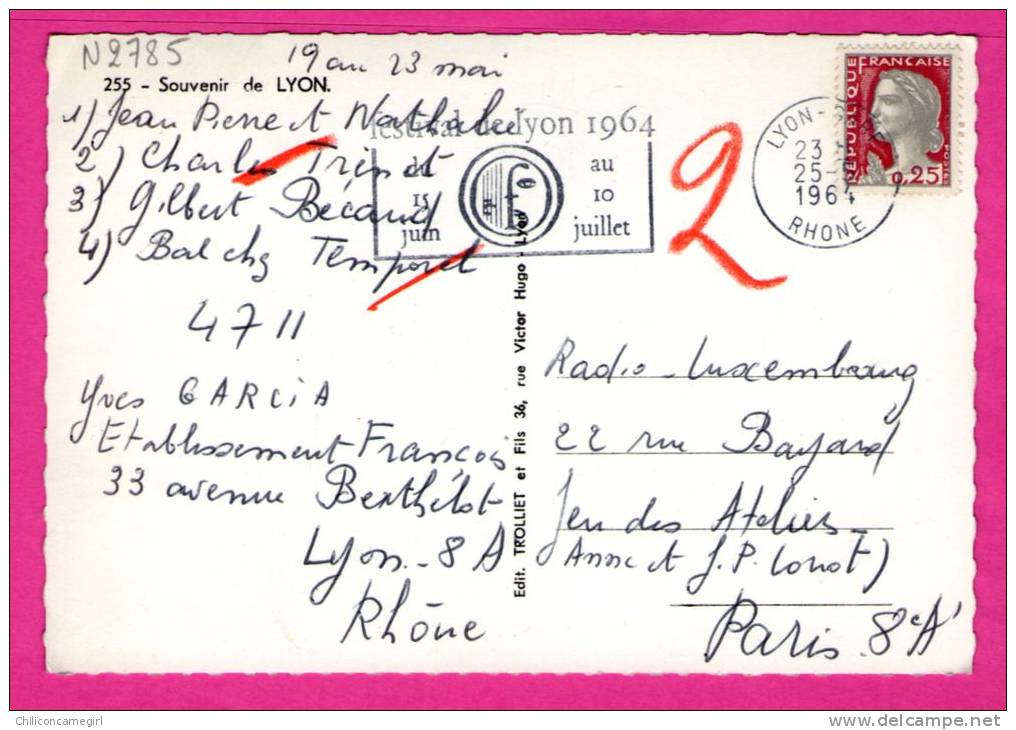 N2785
19 au 23 mai
255 - Souvenir de LYON.
1) Jean Pierre et Nathalie
2) Charles Trénet
3) Gilbert Bécaud
4) Bal chez Temporel
4711
Yves GARCIA
Etablissement François
33 avenue Berthélot
Lyon - 8A
Rhône
festival de lyon 1964
du
15
juin
au
10
juillet
2
LYON-
23
25-
1964
RHONE
REPUBLIQUE FRANCAISE
0,25
Edit. TROLLIET et Fils 36, rue Victor Hugo - Lyon
Radio-Luxembourg
22 rue Bayard
Jeu des Ateliers
Anne et J.P.
Paris 8eA
Chiliconcarnegirl
www.delcampe.net